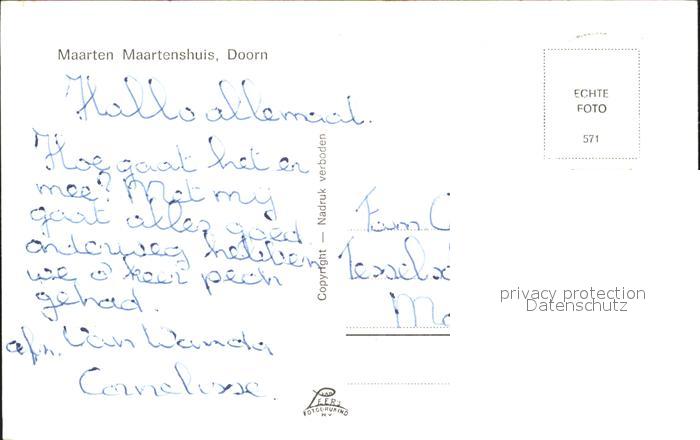 Maarten Maartenshuis, Doorn
Hallo allemaal.
Hoe gaat het er
mee? Met mij
gaat alles goed.
onderweg hebben
we 8 keer pech
gehad.
afz. Van Wanda
Cornelisse.
Copyright — Nadruk verboden
ECHTE
FOTO
571
Fam
Tessels
Ma
privacy protection
Datenschutz
VAN
LEER'S
FOTODRUKIND
N.V.